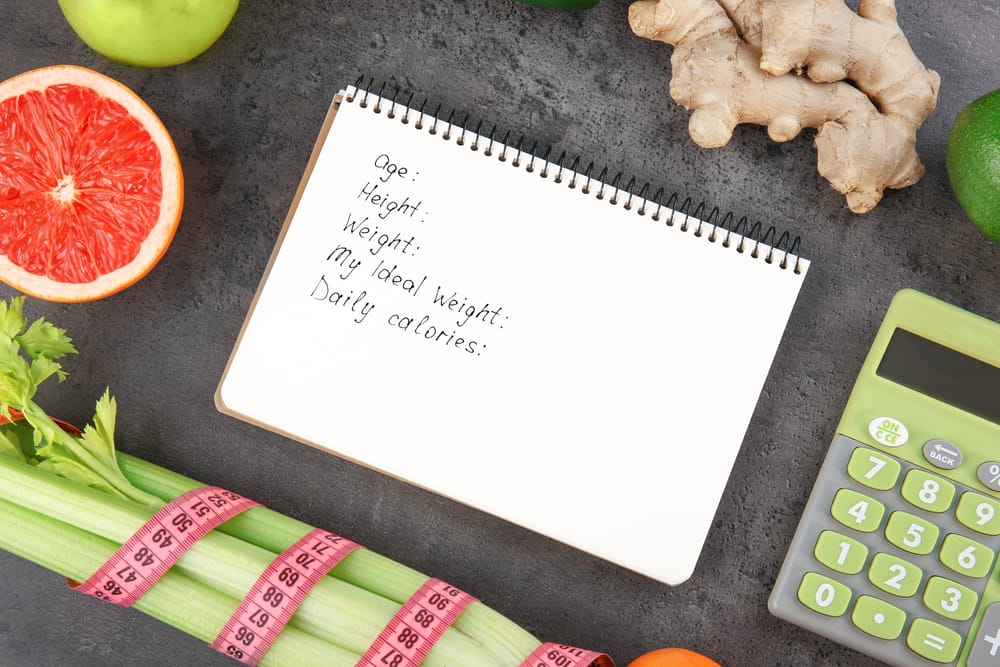 Age:
Height:
Weight:
My Ideal Weight:
Daily calories:
ON
C CE
BACK
%
7
8
9
4
5
6
1
2
3
+
0
.
=
46 47 48 49 50 51 52
67 68 69 70 71
87 88 89 90
109